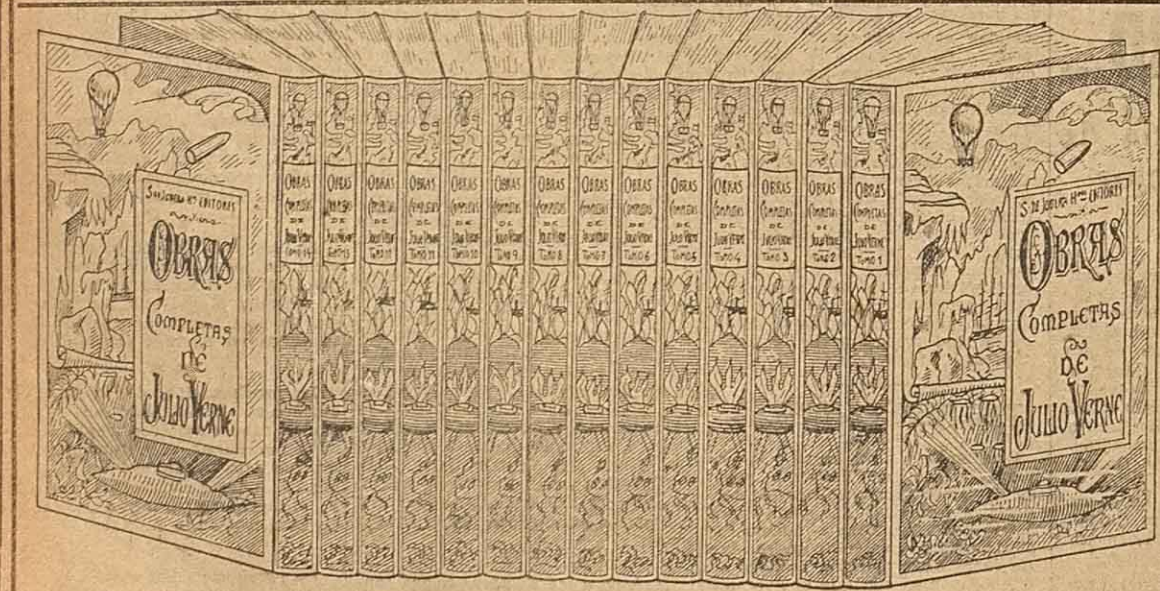 S. DE JUBERA Hnos EDITORES
OBRAS
COMPLETAS
DE
JULIO VERNE
OBRAS
COMPLETAS
DE
JULIO VERNE
TOMO 14
OBRAS
COMPLETAS
DE
JULIO VERNE
TOMO 13
OBRAS
COMPLETAS
DE
JULIO VERNE
TOMO 12
OBRAS
COMPLETAS
DE
JULIO VERNE
TOMO 11
OBRAS
COMPLETAS
DE
JULIO VERNE
TOMO 10
OBRAS
COMPLETAS
DE
JULIO VERNE
TOMO 9
OBRAS
COMPLETAS
DE
JULIO VERNE
TOMO 8
OBRAS
COMPLETAS
DE
JULIO VERNE
TOMO 7
OBRAS
COMPLETAS
DE
JULIO VERNE
TOMO 6
OBRAS
COMPLETAS
DE
JULIO VERNE
TOMO 5
OBRAS
COMPLETAS
DE
JULIO VERNE
TOMO 4
OBRAS
COMPLETAS
DE
JULIO VERNE
TOMO 3
OBRAS
COMPLETAS
DE
JULIO VERNE
TOMO 2
OBRAS
COMPLETAS
DE
JULIO VERNE
TOMO 1
S. DE JUBERA Hnos EDITORES
OBRAS
COMPLETAS
DE
JULIO VERNE